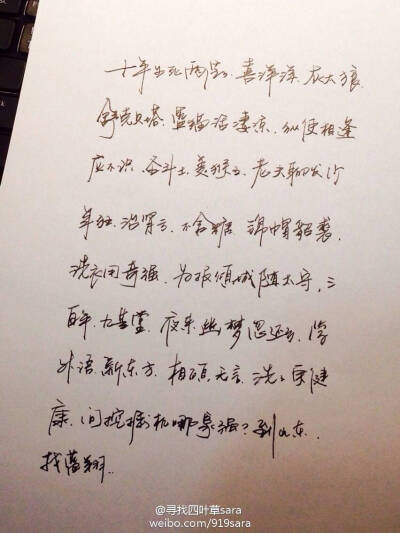 十年生死两茫茫,喜洋洋,灰太狼.
舒克贝塔.蓝猫话凄凉.纵便相逢
应不识.圣斗士.美猴王.老夫聊发少
年狂.治肾亏.不含糖.锦帽貂裘,
洗衣用奇强.为报倾城随太守,三
百年.九芝堂.夜来幽梦忽还乡.学
外语.新东方.相顾无言.洗洗更健
康.问挖掘机哪家强?到山东.
找蓝翔..
@寻找四叶草sara
weibo.com/919sara